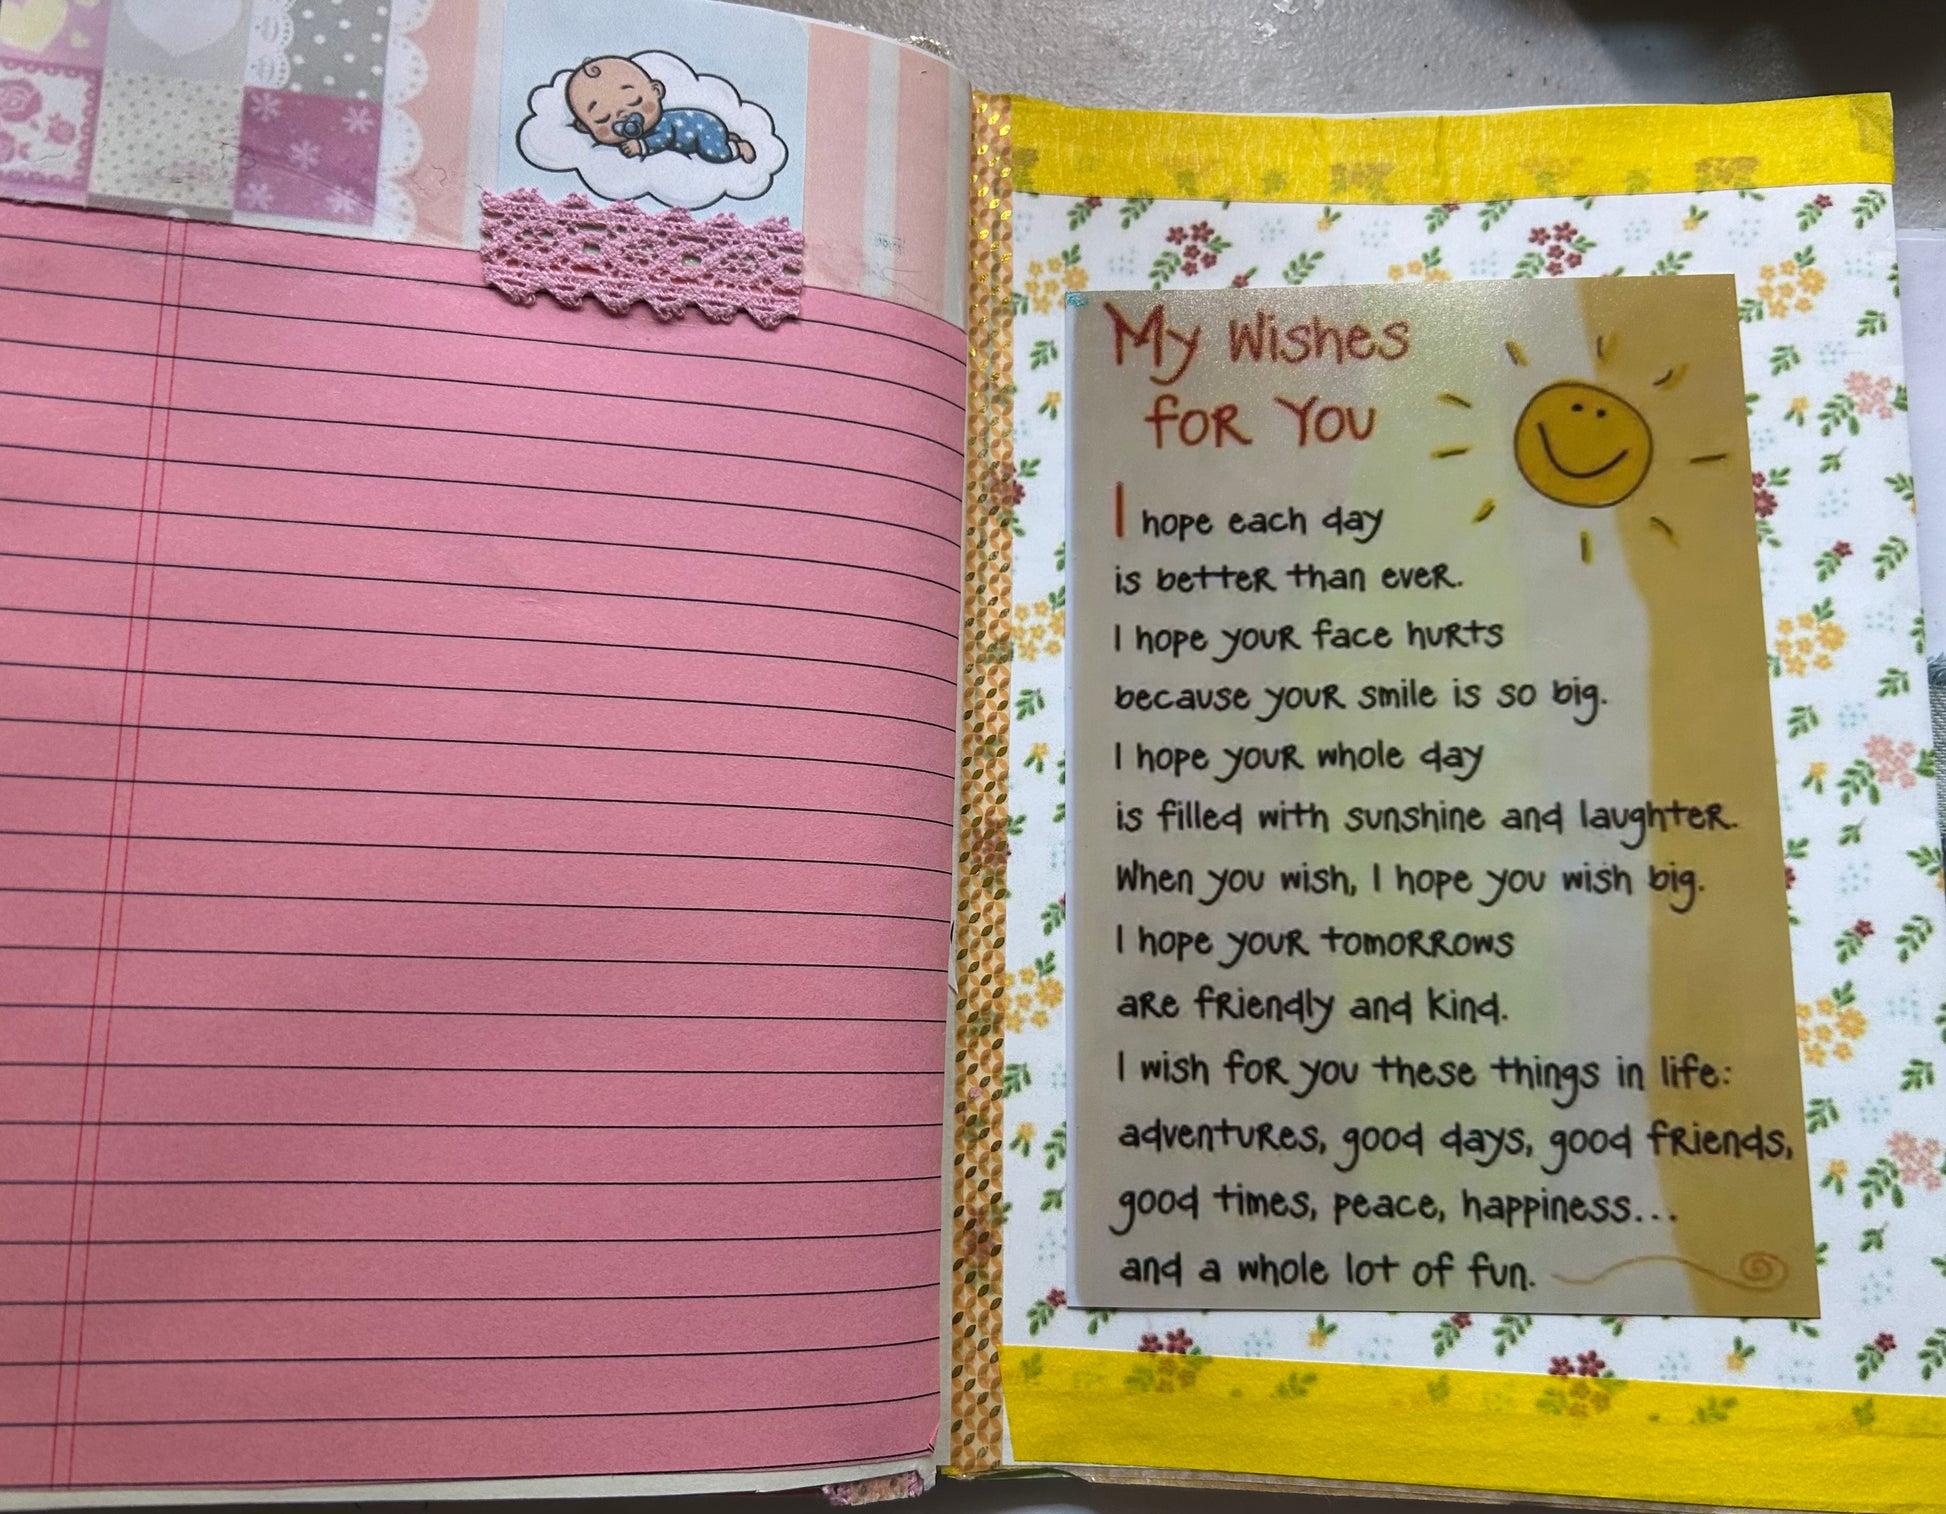 My Wishes
for You
I hope each day
is better than ever.
I hope your face hurts
because your smile is so big.
I hope your whole day
is filled with sunshine and laughter.
When you wish, I hope you wish big.
I hope your tomorrows
are friendly and kind.
I wish for you these things in life:
adventures, good days, good friends,
good times, peace, happiness...
and a whole lot of fun.